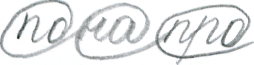 по на про